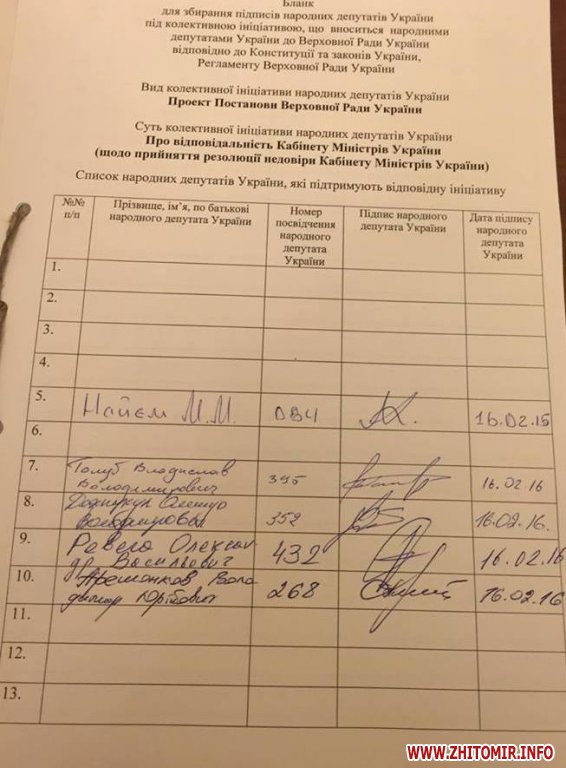 Бланк
для збирання підписів народних депутатів України
під колективною ініціативою, що вноситься народними
депутатами України до Верховної Ради України
відповідно до Конституції та законів України,
Регламенту Верховної Ради України
Вид колективної ініціативи народних депутатів України
Проект Постанови Верховної Ради України
Суть колективної ініціативи народних депутатів України
Про відповідальність Кабінету Міністрів України
(щодо прийняття резолюції недовіри Кабінету Міністрів України)
Список народних депутатів України, які підтримують відповідну ініціативу
№№ п/п
Прізвище, ім'я, по батькові
народного депутата України
Номер
посвідчення
народного
депутата
України
Підпис народного
депутата України
Дата підпису
народного
депутата
України
1.
2.
3.
4.
5. Найєм М.М. 084 16.02.15
6.
7. Голуб Владислав
Володимирович 395 16.02.16
8. 352 16.02.16.
9. Ревега Олексан
др Васильович 432 16.02.16
10. Арешонков Воло
димир Юрійович 268 16.02.16
11.
12.
13.
WWW.ZHITOMIR.INFO